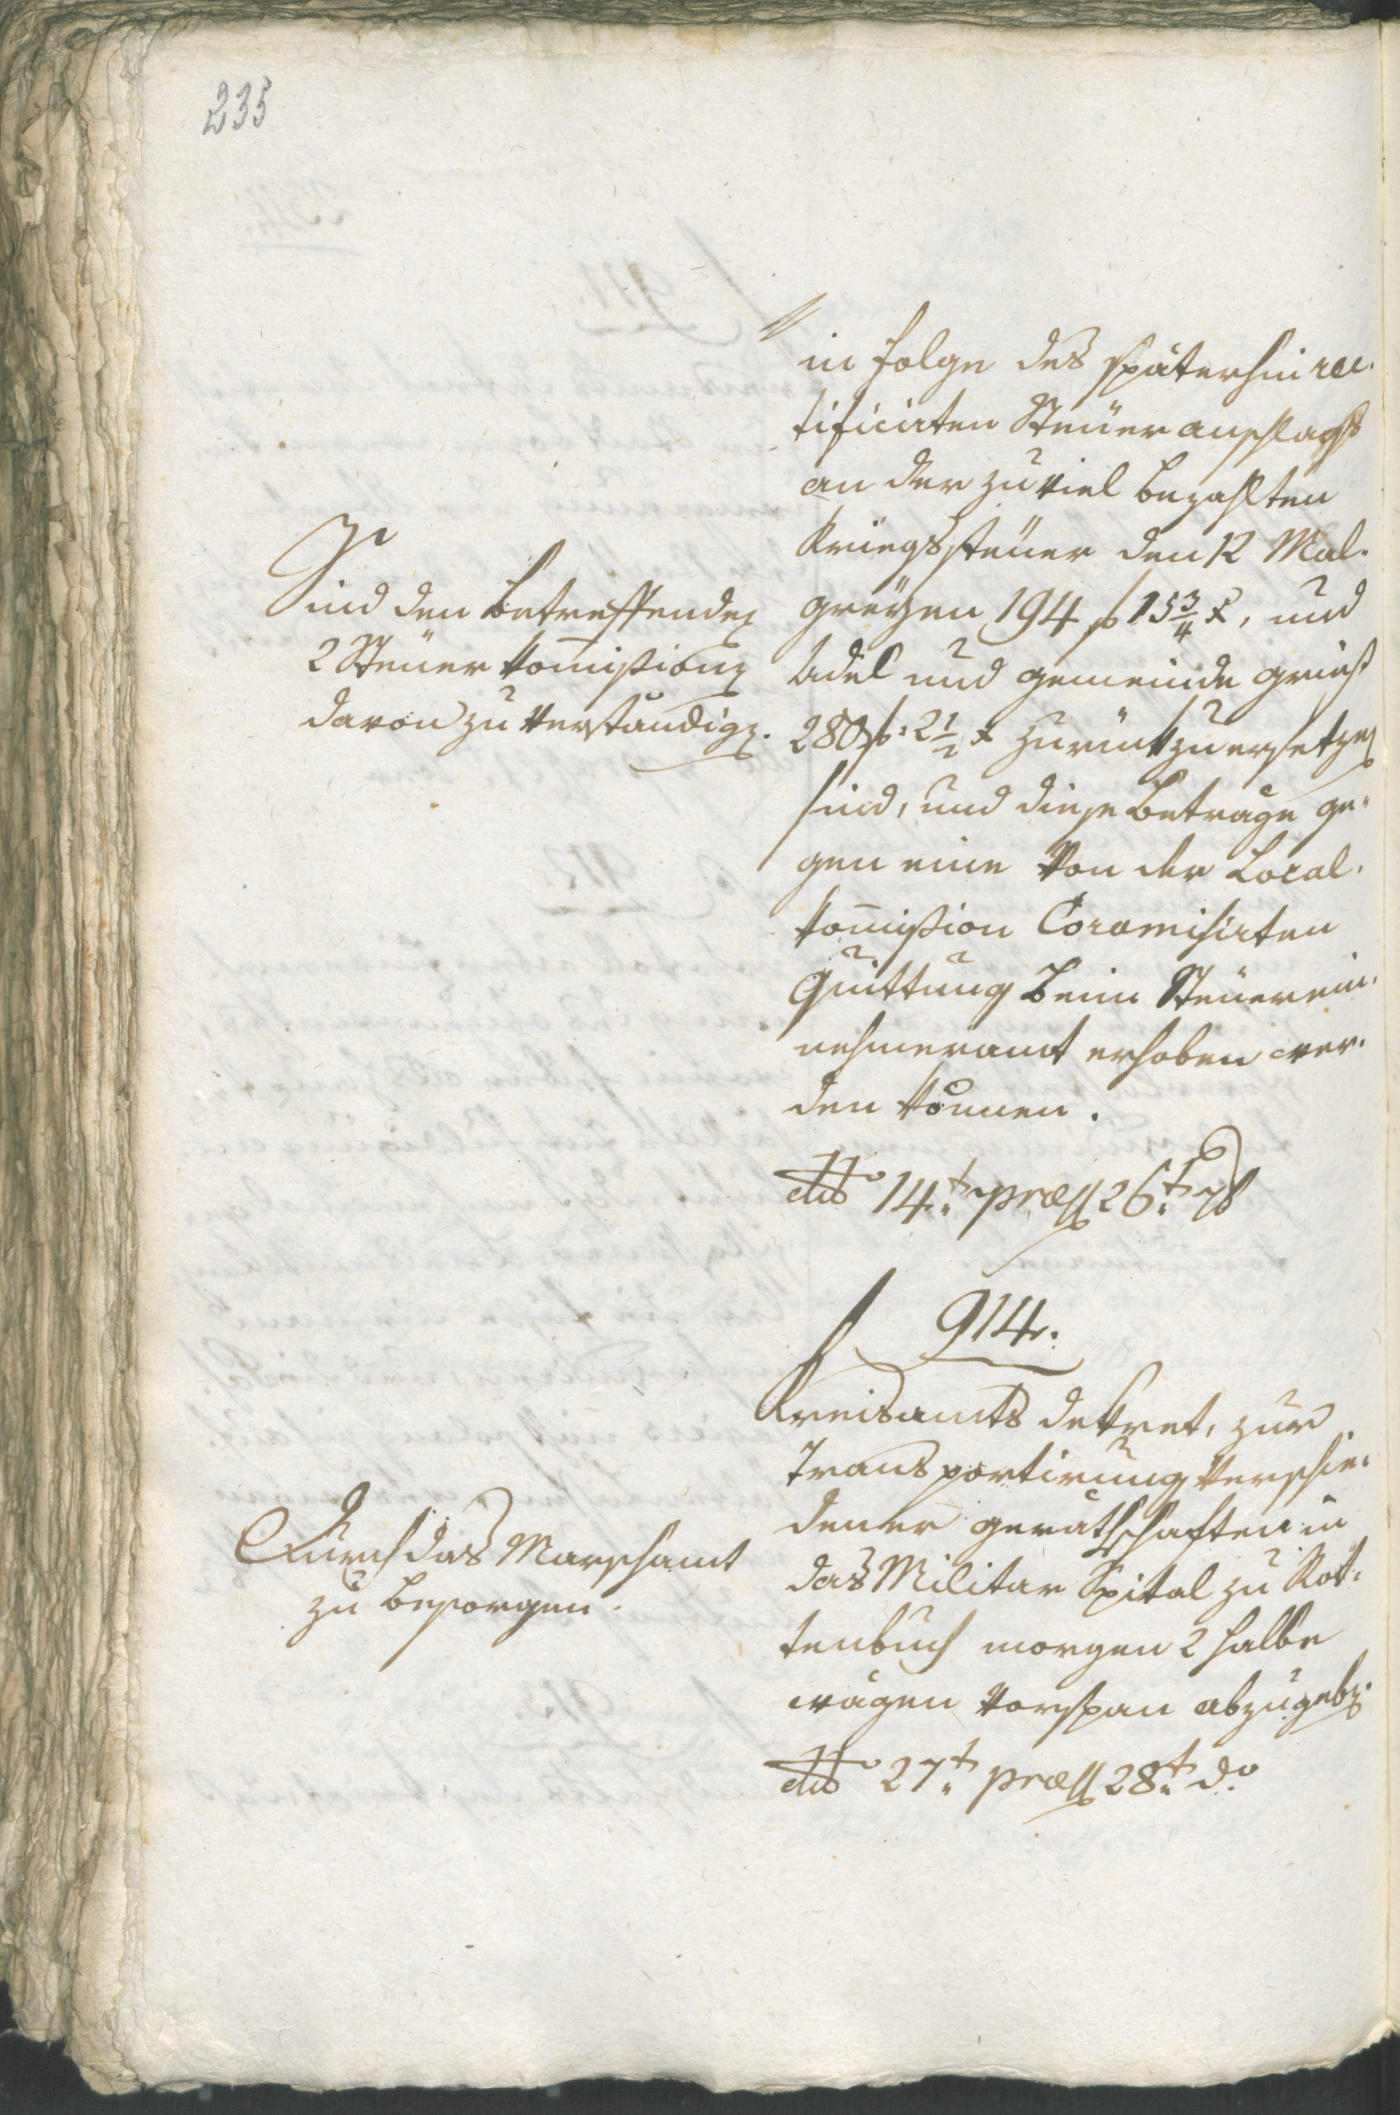 235
in Folge des späterhin rec-
tificirten Steüeranschlags
an der zu viel bezahlten
Kriegssteüer den 12 Mal-
greyen 194 f 15 3/4 x, und
Adel und Gemeinde Gries
280 f: 2 1/2 x zurückzuersetzen
sind, und diese Beträge ge-
gen eine von der Local-
Kom̄ission Coramisirten
Quittung beim Steüerein-
nehmeramt erhoben wer-
den können.
dto 14.t præss 26.t
Sind den betreffenden
2 Steüer Kom̄issionen
davon zu verständigen.
914.
Kreisamts Dekret, zur
Transportirung verschie-
dener Geräthschaften in
das Militar Spital zu Rot-
tenbuch morgen 2 halbe
Wägen Vorspan abzugeben.
dto 27.t præss 28.t do
Durch das Marschamt
zu besorgen.